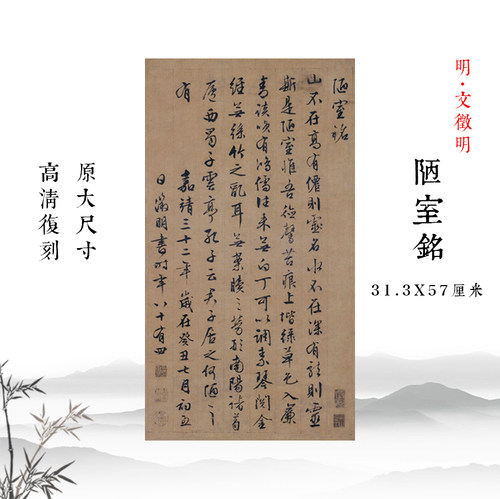 明·文徵明
陋室銘
31.3X57厘米
陋室銘
山不在高有僊則靈名水不在深有龍則靈
斯是陋室惟吾德馨苔痕上堦綠草色入簾
青談笑有鴻儒往来無白丁可以調素琴閱金
經無絲竹之亂耳無案牘之勞形南陽諸葛
廬西蜀子雲亭孔子云君子居之何陋之
有
嘉靖三十二年歲在癸丑七月初五
日徵明書時年八十有四
原大尺寸
高清復刻